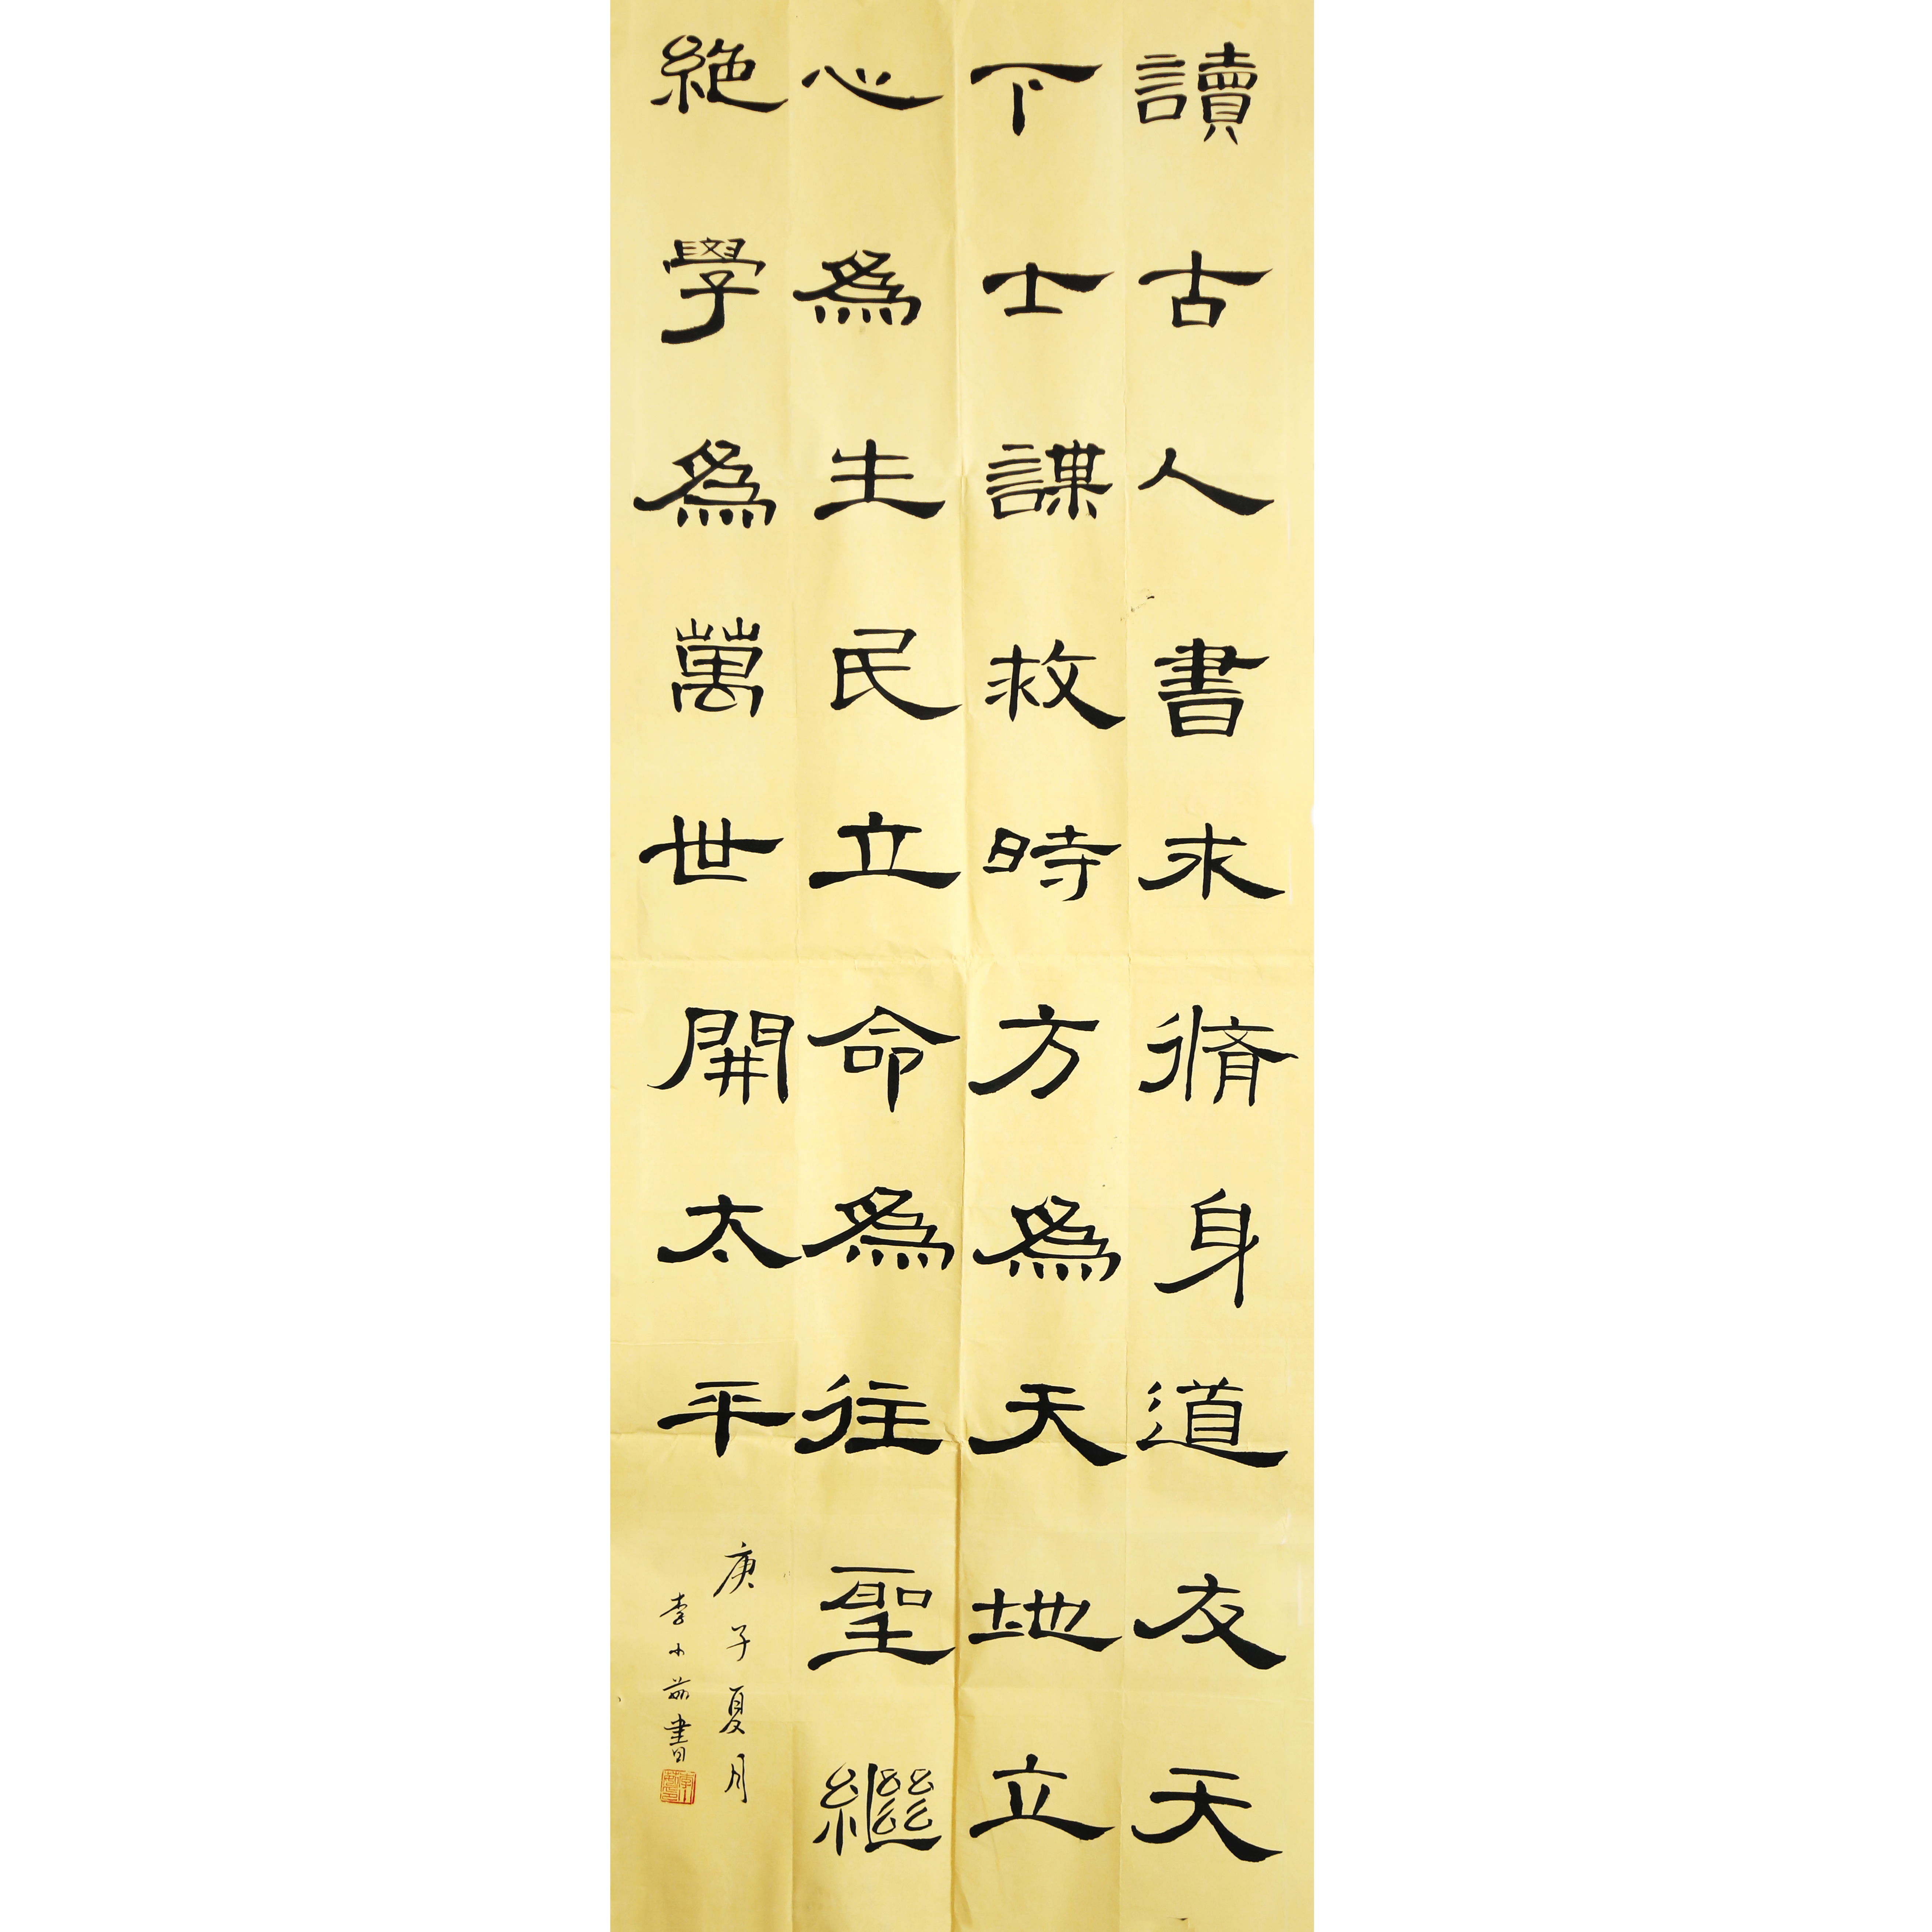 讀古人書求脩身道友天
下士謀救時方爲天地立
心爲生民立命爲往聖繼
絶學爲萬世開太平
庚子夏月
李小茹書